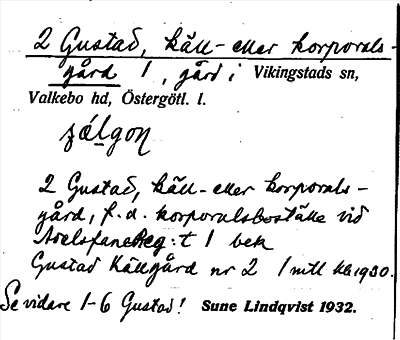 2 Gustad, käll- eller korporals-
gård 1, gård i Vikingstads sn,
Valkebo hd, Östergötl. l.
2 Gustad, käll- eller korporals-
gård, f.d. korporalsboställe vid
Adelsfane Reg:t 1
Gustad Källgård nr 2 1 mtl 1930.
Se vidare 1-6 Gustad! Sune Lindqvist 1932.